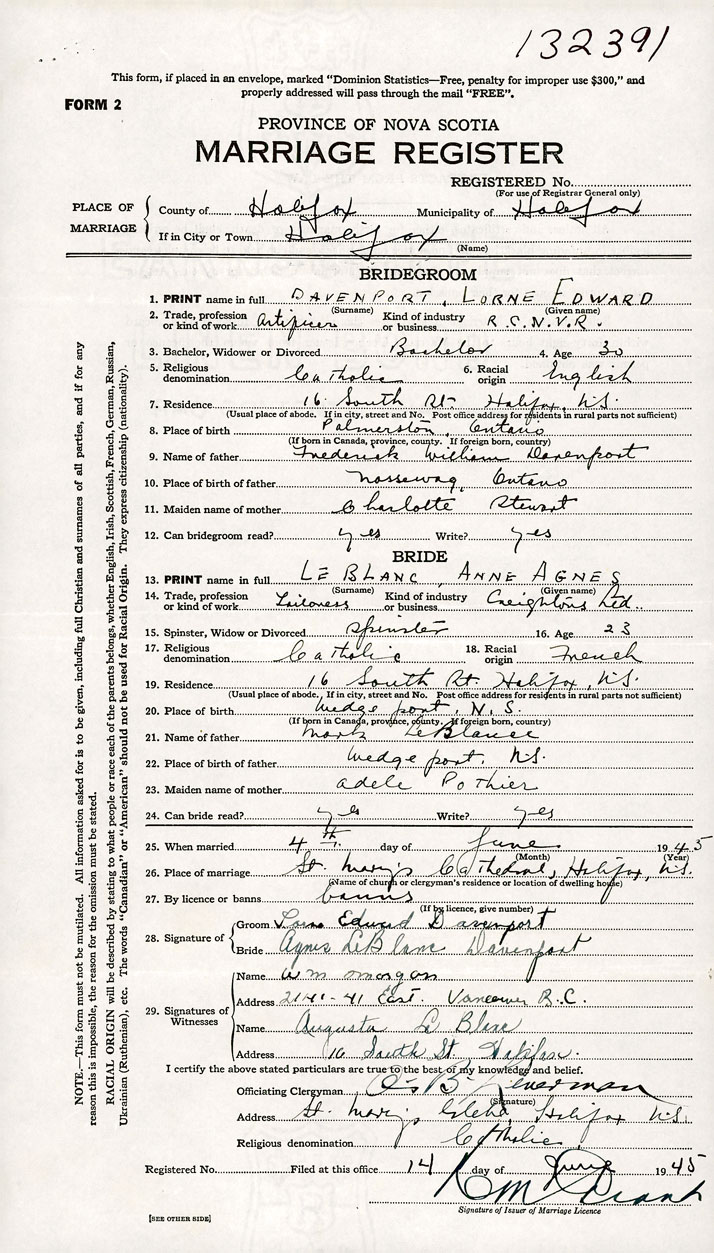 132391
This form, if placed in an envelope, marked "Dominion Statistics—Free, penalty for improper use $300," and
properly addressed will pass through the mail "FREE".
FORM 2
PROVINCE OF NOVA SCOTIA
MARRIAGE REGISTER
REGISTERED No.
(For use of Registrar General only)
PLACE OF MARRIAGE
County of Halifax Municipality of Halifax
If in City or Town Halifax
(Name)
BRIDEGROOM
1. PRINT name in full DAVENPORT, LORNE EDWARD
(Surname) (Given name)
2. Trade, profession or kind of work Artificer Kind of industry or business R.C.N.V.R.
3. Bachelor, Widower or Divorced Bachelor 4. Age 30
5. Religious denomination Catholic 6. Racial origin English
7. Residence 16 South St. Halifax, N.S.
(Usual place of abode. If in city, street and No. Post office address for residents in rural parts not sufficient)
8. Place of birth Palmerston, Ontario
(If born in Canada, province, county. If foreign born, country)
9. Name of father Frederick William Davenport
10. Place of birth of father Ontario
11. Maiden name of mother Charlotte Stewart
12. Can bridegroom read? yes Write? yes
BRIDE
13. PRINT name in full LE BLANC, ANNE AGNES
(Surname) (Given name)
14. Trade, profession or kind of work Tailoress Kind of industry or business Creightons Ltd.
15. Spinster, Widow or Divorced Spinster 16. Age 23
17. Religious denomination Catholic 18. Racial origin French
19. Residence 16 South St. Halifax, N.S.
(Usual place of abode. If in city, street and No. Post office address for residents in rural parts not sufficient)
20. Place of birth Wedgeport, N.S.
(If born in Canada, province, county. If foreign born, country)
21. Name of father Mark LeBlanc
22. Place of birth of father Wedgeport, N.S.
23. Maiden name of mother Adele Pothier
24. Can bride read? yes Write? yes
25. When married 4th day of June 1945
(Month) (Year)
26. Place of marriage St. Mary's Cathedral, Halifax, N.S.
(Name of church or clergyman's residence or location of dwelling house)
27. By licence or banns banns
(If by licence, give number)
28. Signature of
Groom Lorne Edward Davenport
Bride Agnes LeBlanc Davenport
29. Signatures of Witnesses
Name Wm Morgan
Address 2141-41 East. Vancouver B.C.
Name Augusta Le Blanc
Address 16 South St. Halifax.
I certify the above stated particulars are true to the best of my knowledge and belief.
Officiating Clergyman
(Signature)
Address St. Mary's Glebe, Halifax N.S.
Religious denomination Catholic
Registered No. Filed at this office 14 day of June 1945
Signature of Issuer of Marriage Licence
[SEE OTHER SIDE]
NOTE.—This form must not be mutilated. All information asked for is to be given, including full Christian and surnames of all parties, and if for any
reason this is impossible, the reason for the omission must be stated.
RACIAL ORIGIN will be described by stating to what people or race each of the parents belongs, whether English, Irish, Scottish, French, German, Russian,
Ukrainian (Ruthenian), etc. The words "Canadian" or "American" should not be used for Racial Origin. They express citizenship (nationality).